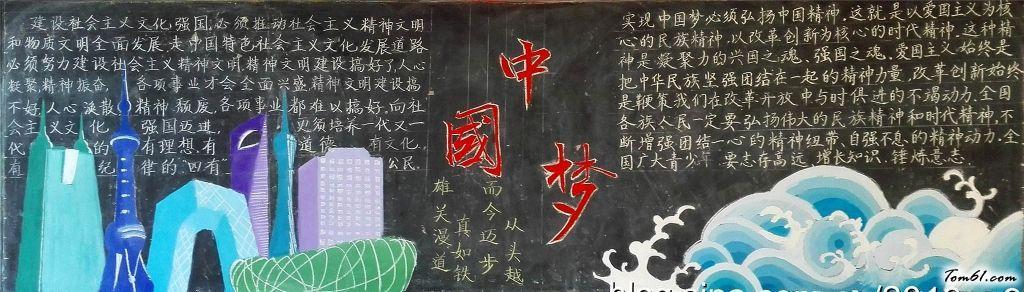 建设社会主义文化强国,必须推动社会主义精神文明
和物质文明全面发展,走中国特色社会主义文化发展道路
必须努力建设社会主义精神文明,精神文明建设搞好了,人心
凝聚,精神振奋,各项事业才会全面兴盛,精神文明建设搞
不好,人心涣散,精神颓废,各项事业都难以搞好,向社
会主义文化 强国迈进, 必须培养一代又一
代 的 有理想,有 道德 有文化,
有 纪 律的“四有” 公民.
中
國
梦
雄关漫道
真如铁
而今迈步
从头越
实现中国梦必须弘扬中国精神,这就是以爱国主义为核
心的民族精神,以改革创新为核心的时代精神,这种精
神是凝聚力的兴国之魂、强国之魂,爱国主义始终是
把中华民族坚强团结在一起的精神力量,改革创新始终
是鞭策我们在改革开放中与时俱进的不竭动力,全国
各族人民一定要弘扬伟大的民族精神和时代精神,不
断增强团结一心的精神纽带、自强不息的精神动力,全
国广大青少年 要志存高远,增长知识,锤炼意志
Tom61.com